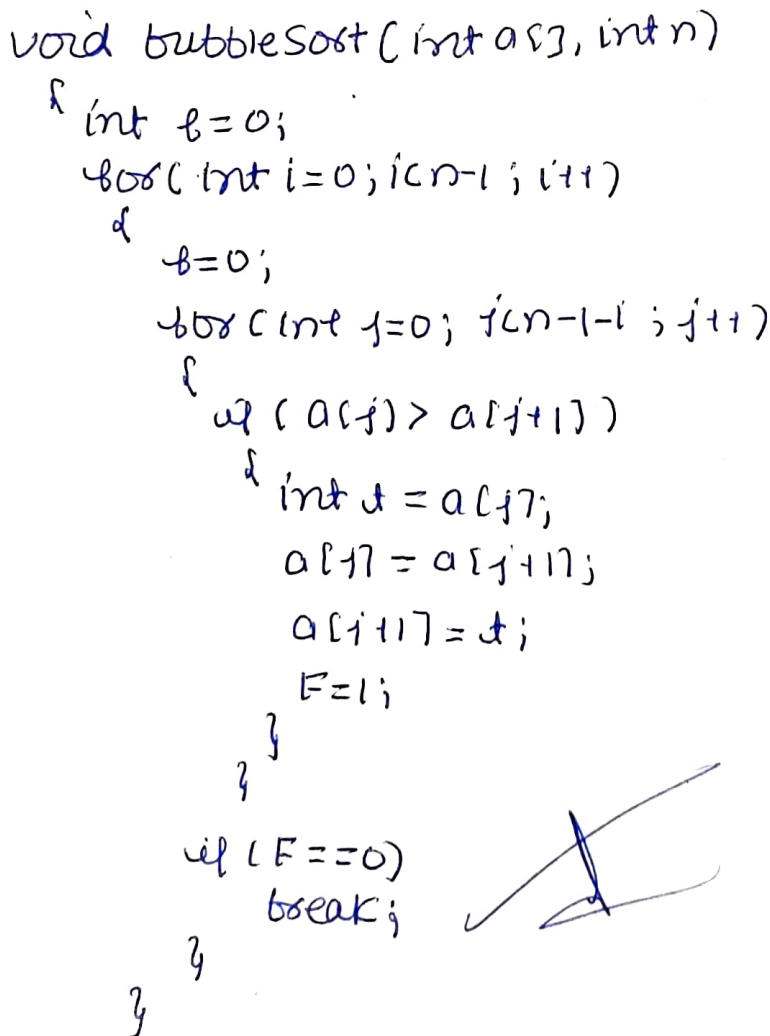 void bubbleSort(int a[], int n)
{ int f=0;
for(int i=0; i<n-1; i++)
{
f=0;
for(int j=0; j<n-1-i; j++)
{
if (a[j]> a[j+1])
{ int t = a[j];
a[j] = a[j+1];
a[j+1] = t;
F=1;
}
}
if (F==0)
break;
}
}